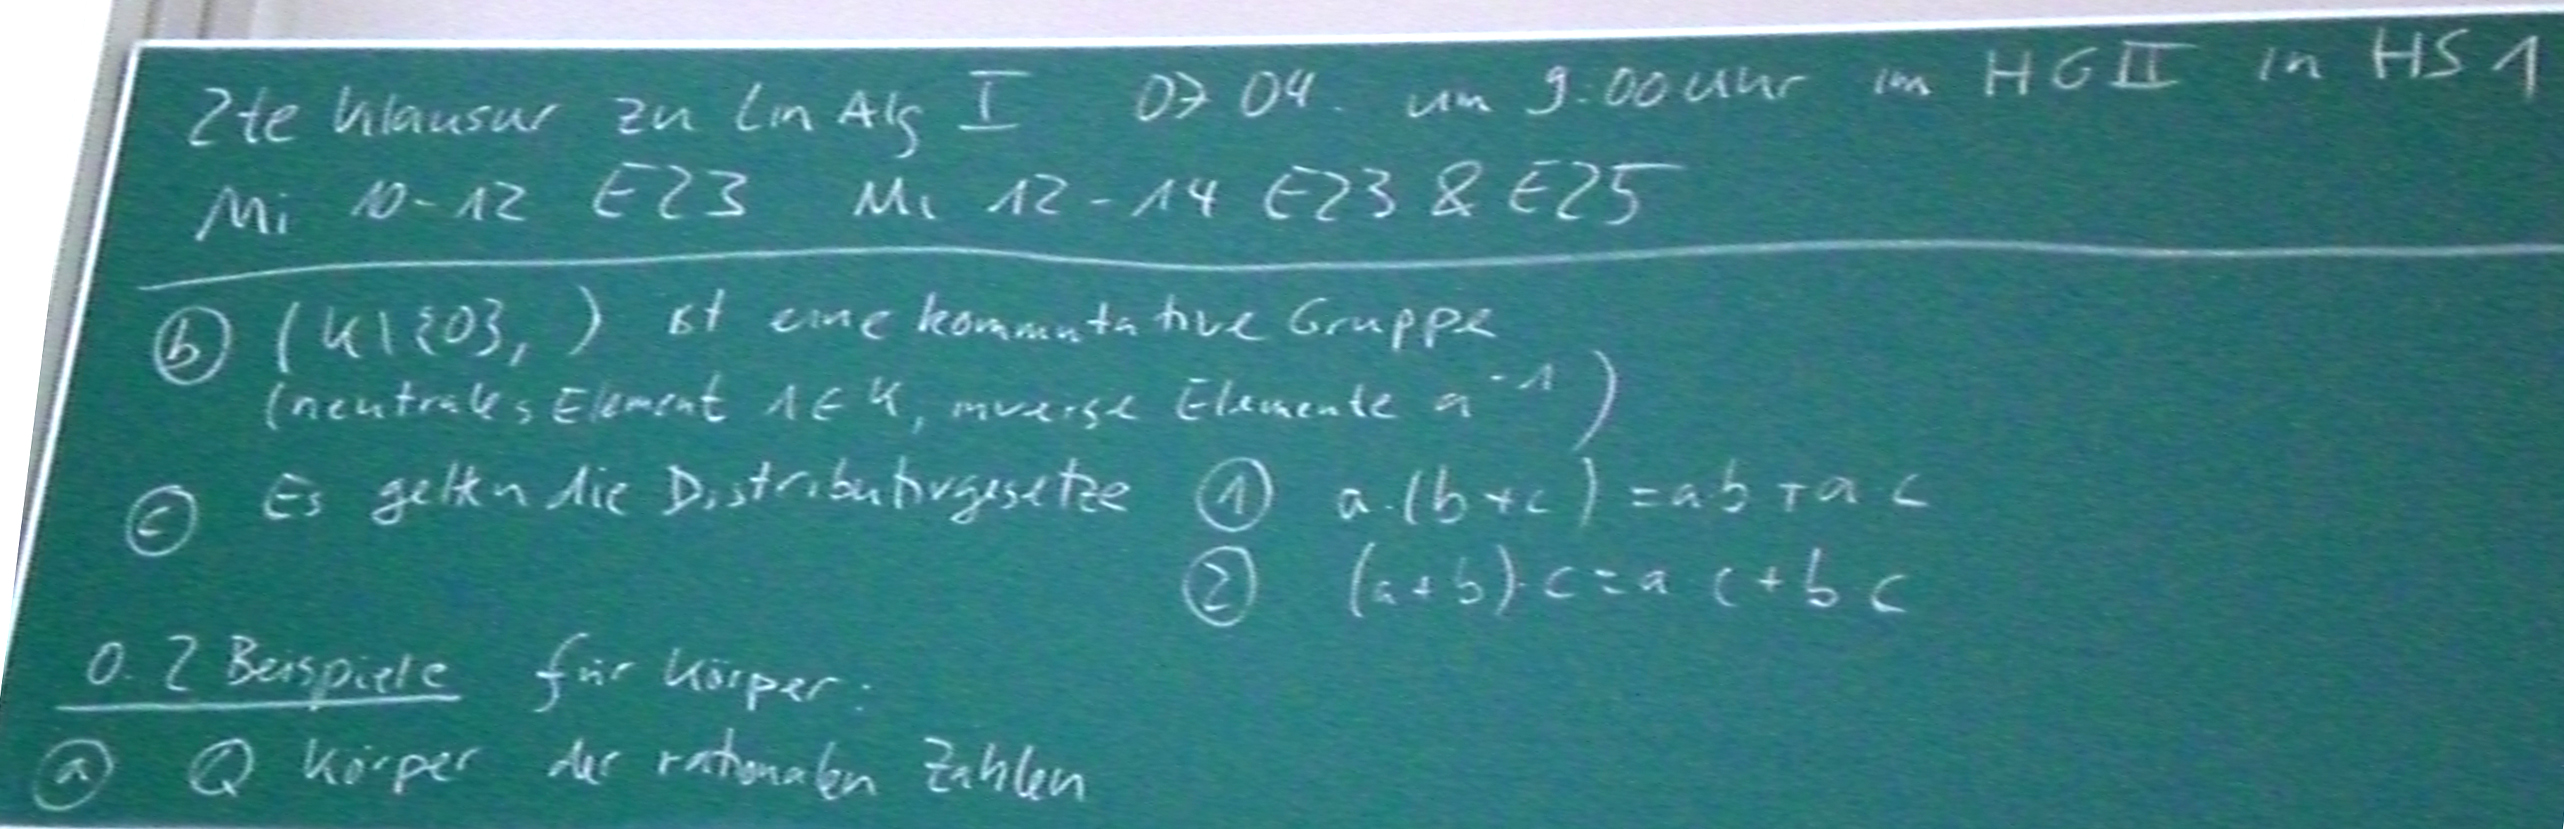 2te Klausur zu Lin Alg I 07 04. um 9:00 Uhr im HG II in HS 1
Mi 10-12 E23 Mi 12-14 E23 & E25
(b) (K\{0}, ) ist eine kommutative Gruppe
(neutrales Element 1∈K, inverse Elemente a⁻¹)
(c) Es gelten die Distributivgesetze (1) a·(b+c)=ab+a c
(2) (a+b)·c=a c+b c
0.2 Beispiele für Körper:
(a) Q Körper der rationalen Zahlen